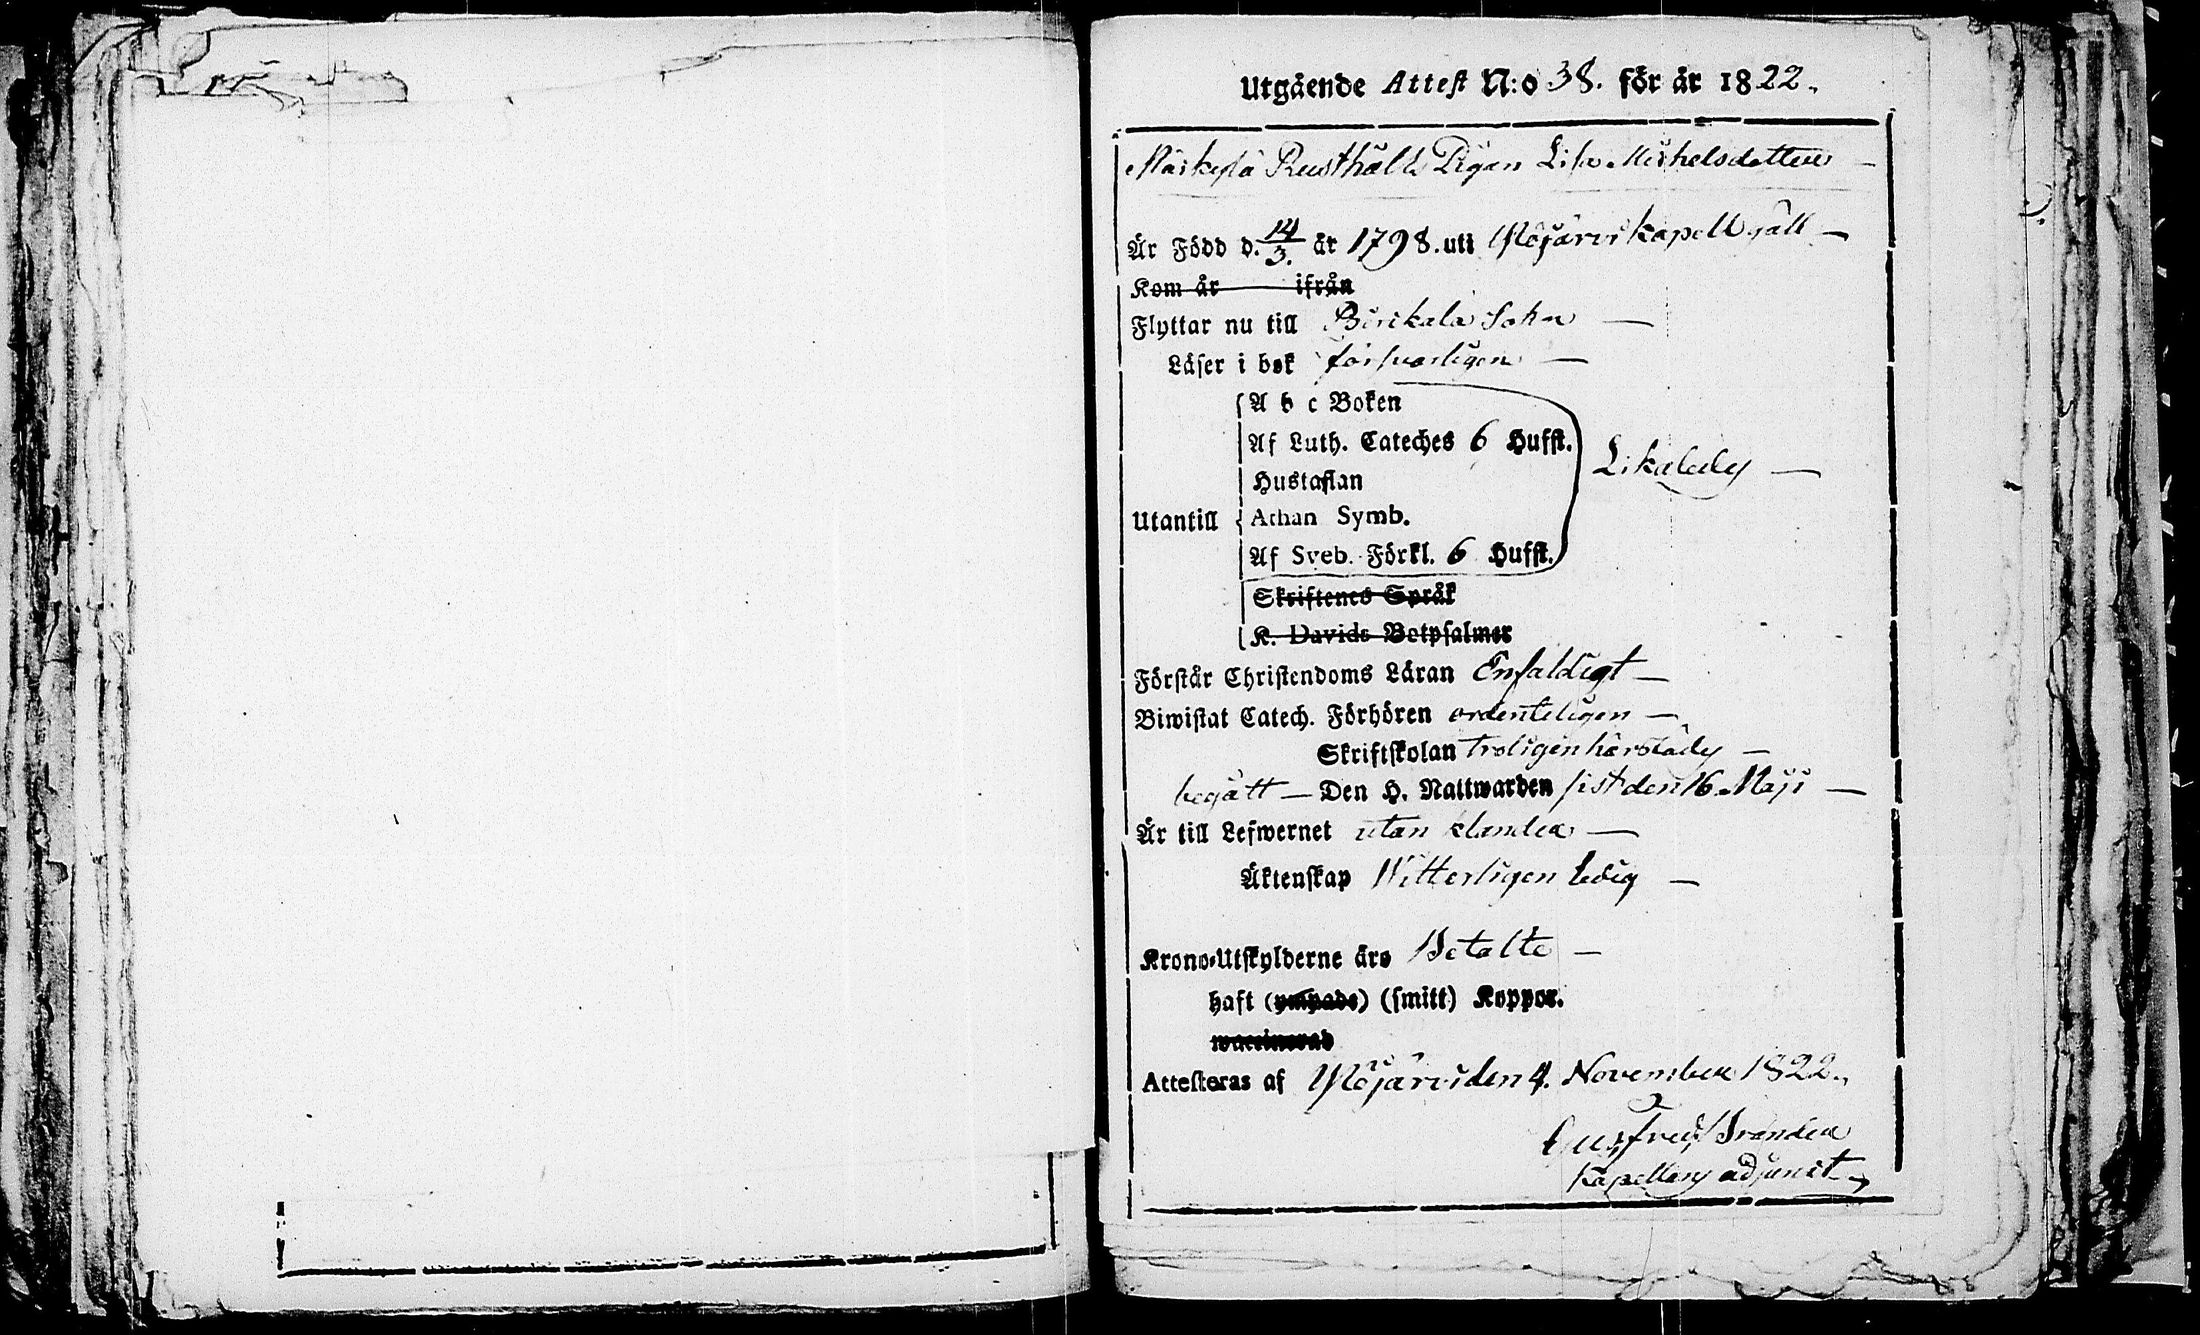 Utgående Attest N:o 38. för år 1822.
Rusthålls Pigan Lisa Michelsdotter —
Är Född d. 14/3. år 1798. uti Ylöjärvi kapell gäll —
Kom år ifrån
Flyttar nu till Birikala Sokn —
Läser i bok försvarligen —
A b c Boken
Af Luth. Cateches 6 Hufst.
Likaledes —
Hustaflan
Utantill Athan Symb.
Af Sveb. Förkl. 6 Hufst.
Skriftenes Språk
K. Davids Botpsalmer
Förstår Christendoms Läran Enfaldigt —
Biwistat Catech. Förhören ordenteligen —
Skriftskolan troligen härstädes —
begått — Den H. Nattwarden sist den 16 Maji —
Är till Lefwernet utan klander —
Äktenskap Witterligen ledig —
Krono-Utskylderne äro Betalte —
haft (ympade) (smitt) Koppor.
waccinerad
Attesteras af Ylöjärvi den 4. November 1822.
Kapellans adjunct